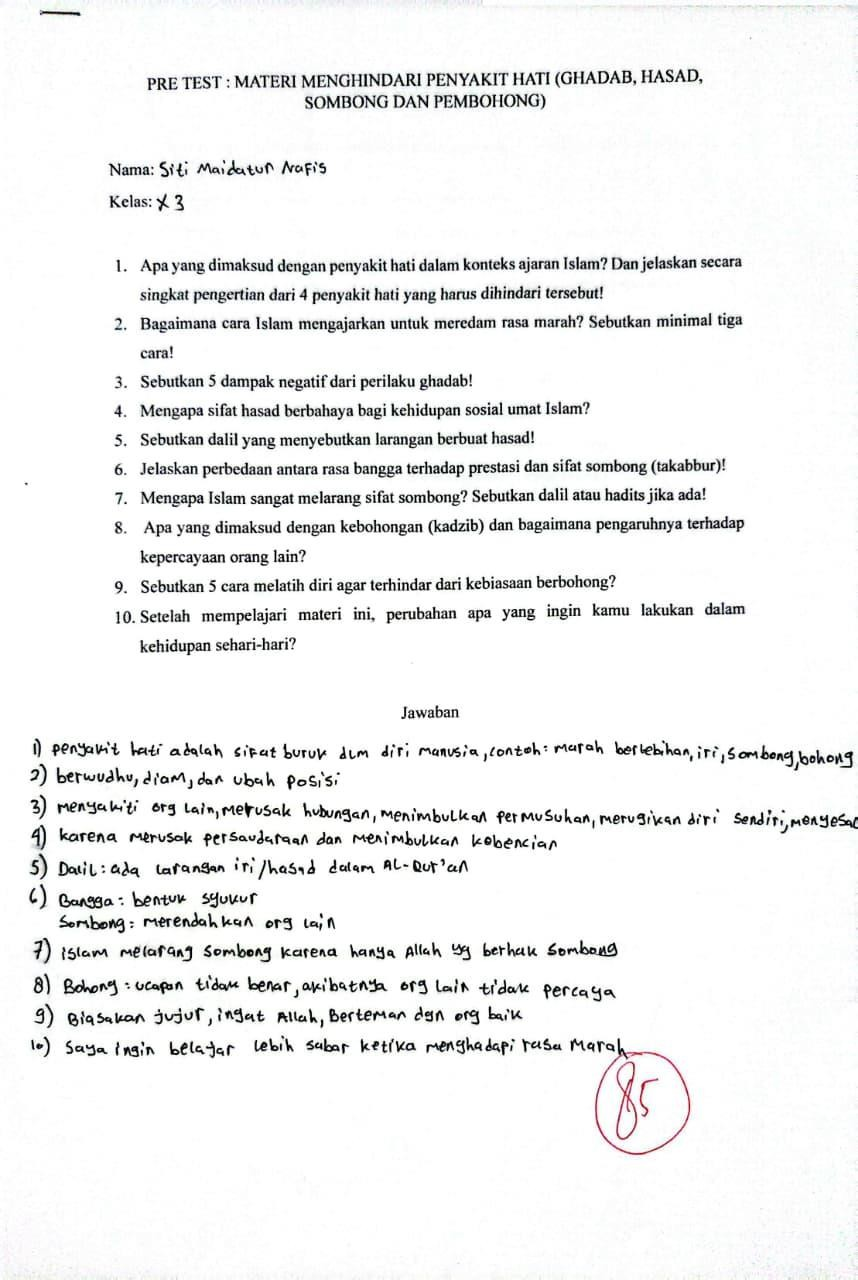 PRE TEST : MATERI MENGHINDARI PENYAKIT HATI (GHADAB, HASAD,
SOMBONG DAN PEMBOHONG)
Nama: Siti Maidatun Nafis
Kelas: X 3
1. Apa yang dimaksud dengan penyakit hati dalam konteks ajaran Islam? Dan jelaskan secara
singkat pengertian dari 4 penyakit hati yang harus dihindari tersebut!
2. Bagaimana cara Islam mengajarkan untuk meredam rasa marah? Sebutkan minimal tiga
cara!
3. Sebutkan 5 dampak negatif dari perilaku ghadab!
4. Mengapa sifat hasad berbahaya bagi kehidupan sosial umat Islam?
5. Sebutkan dalil yang menyebutkan larangan berbuat hasad!
6. Jelaskan perbedaan antara rasa bangga terhadap prestasi dan sifat sombong (takabbur)!
7. Mengapa Islam sangat melarang sifat sombong? Sebutkan dalil atau hadits jika ada!
8. Apa yang dimaksud dengan kebohongan (kadzib) dan bagaimana pengaruhnya terhadap
kepercayaan orang lain?
9. Sebutkan 5 cara melatih diri agar terhindar dari kebiasaan berbohong?
10. Setelah mempelajari materi ini, perubahan apa yang ingin kamu lakukan dalam
kehidupan sehari-hari?
Jawaban
1) penyakit hati adalah sifat buruk dlm diri manusia, contoh: marah berlebihan, iri, sombong, bohong
2) berwudhu, diam, dan ubah posisi
3) menyakiti org lain, merusak hubungan, menimbulkan permusuhan, merugikan diri sendiri, menyesal
4) karena merusak persaudaraan dan menimbulkan kebencian
5) Dalil : ada larangan iri/hasad dalam AL-Qur'an
6) Bangga : bentuk syukur
Sombong : merendahkan org lain
7) islam melarang sombong karena hanya Allah yg berhak sombong
8) Bohong : ucapan tidak benar, akibatnya org lain tidak percaya
9) Biasakan jujur, ingat Allah, Berteman dgn org baik
10) Saya ingin belajar lebih sabar ketika menghadapi rasa marah
85